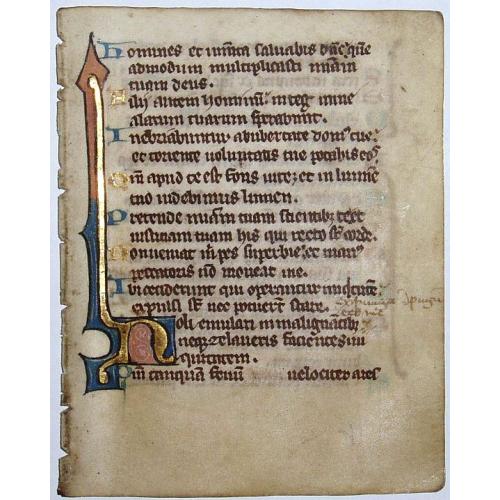 Homines et iumēta salvabis dn̄e quē
admodum multiplicasti miām
tuam deus.
Filij autem hominū in teg mine
alarum tuarum sperabunt.
Inebriabuntur ab ubertate dom⁹ tue
et torrente voluptatis tue potabis eos
Qm̄ apud te est fons vite et in lumine
tuo videbimus lumen.
Pretende miam tuam scientib⁹ te et
iusticiam tuam his qui recto st̄ corde.
Non veniat m̄ pes superbie et man⁹
peccatoris nō moveat me.
Ibi ceciderunt qui operantur
expulsi st̄ nec potuerūt stare.
Noli emulari in malignātib⁹
neqz zelaveris facientes in
iquitatem.
Qm̄ tanquā fenū velociter ares